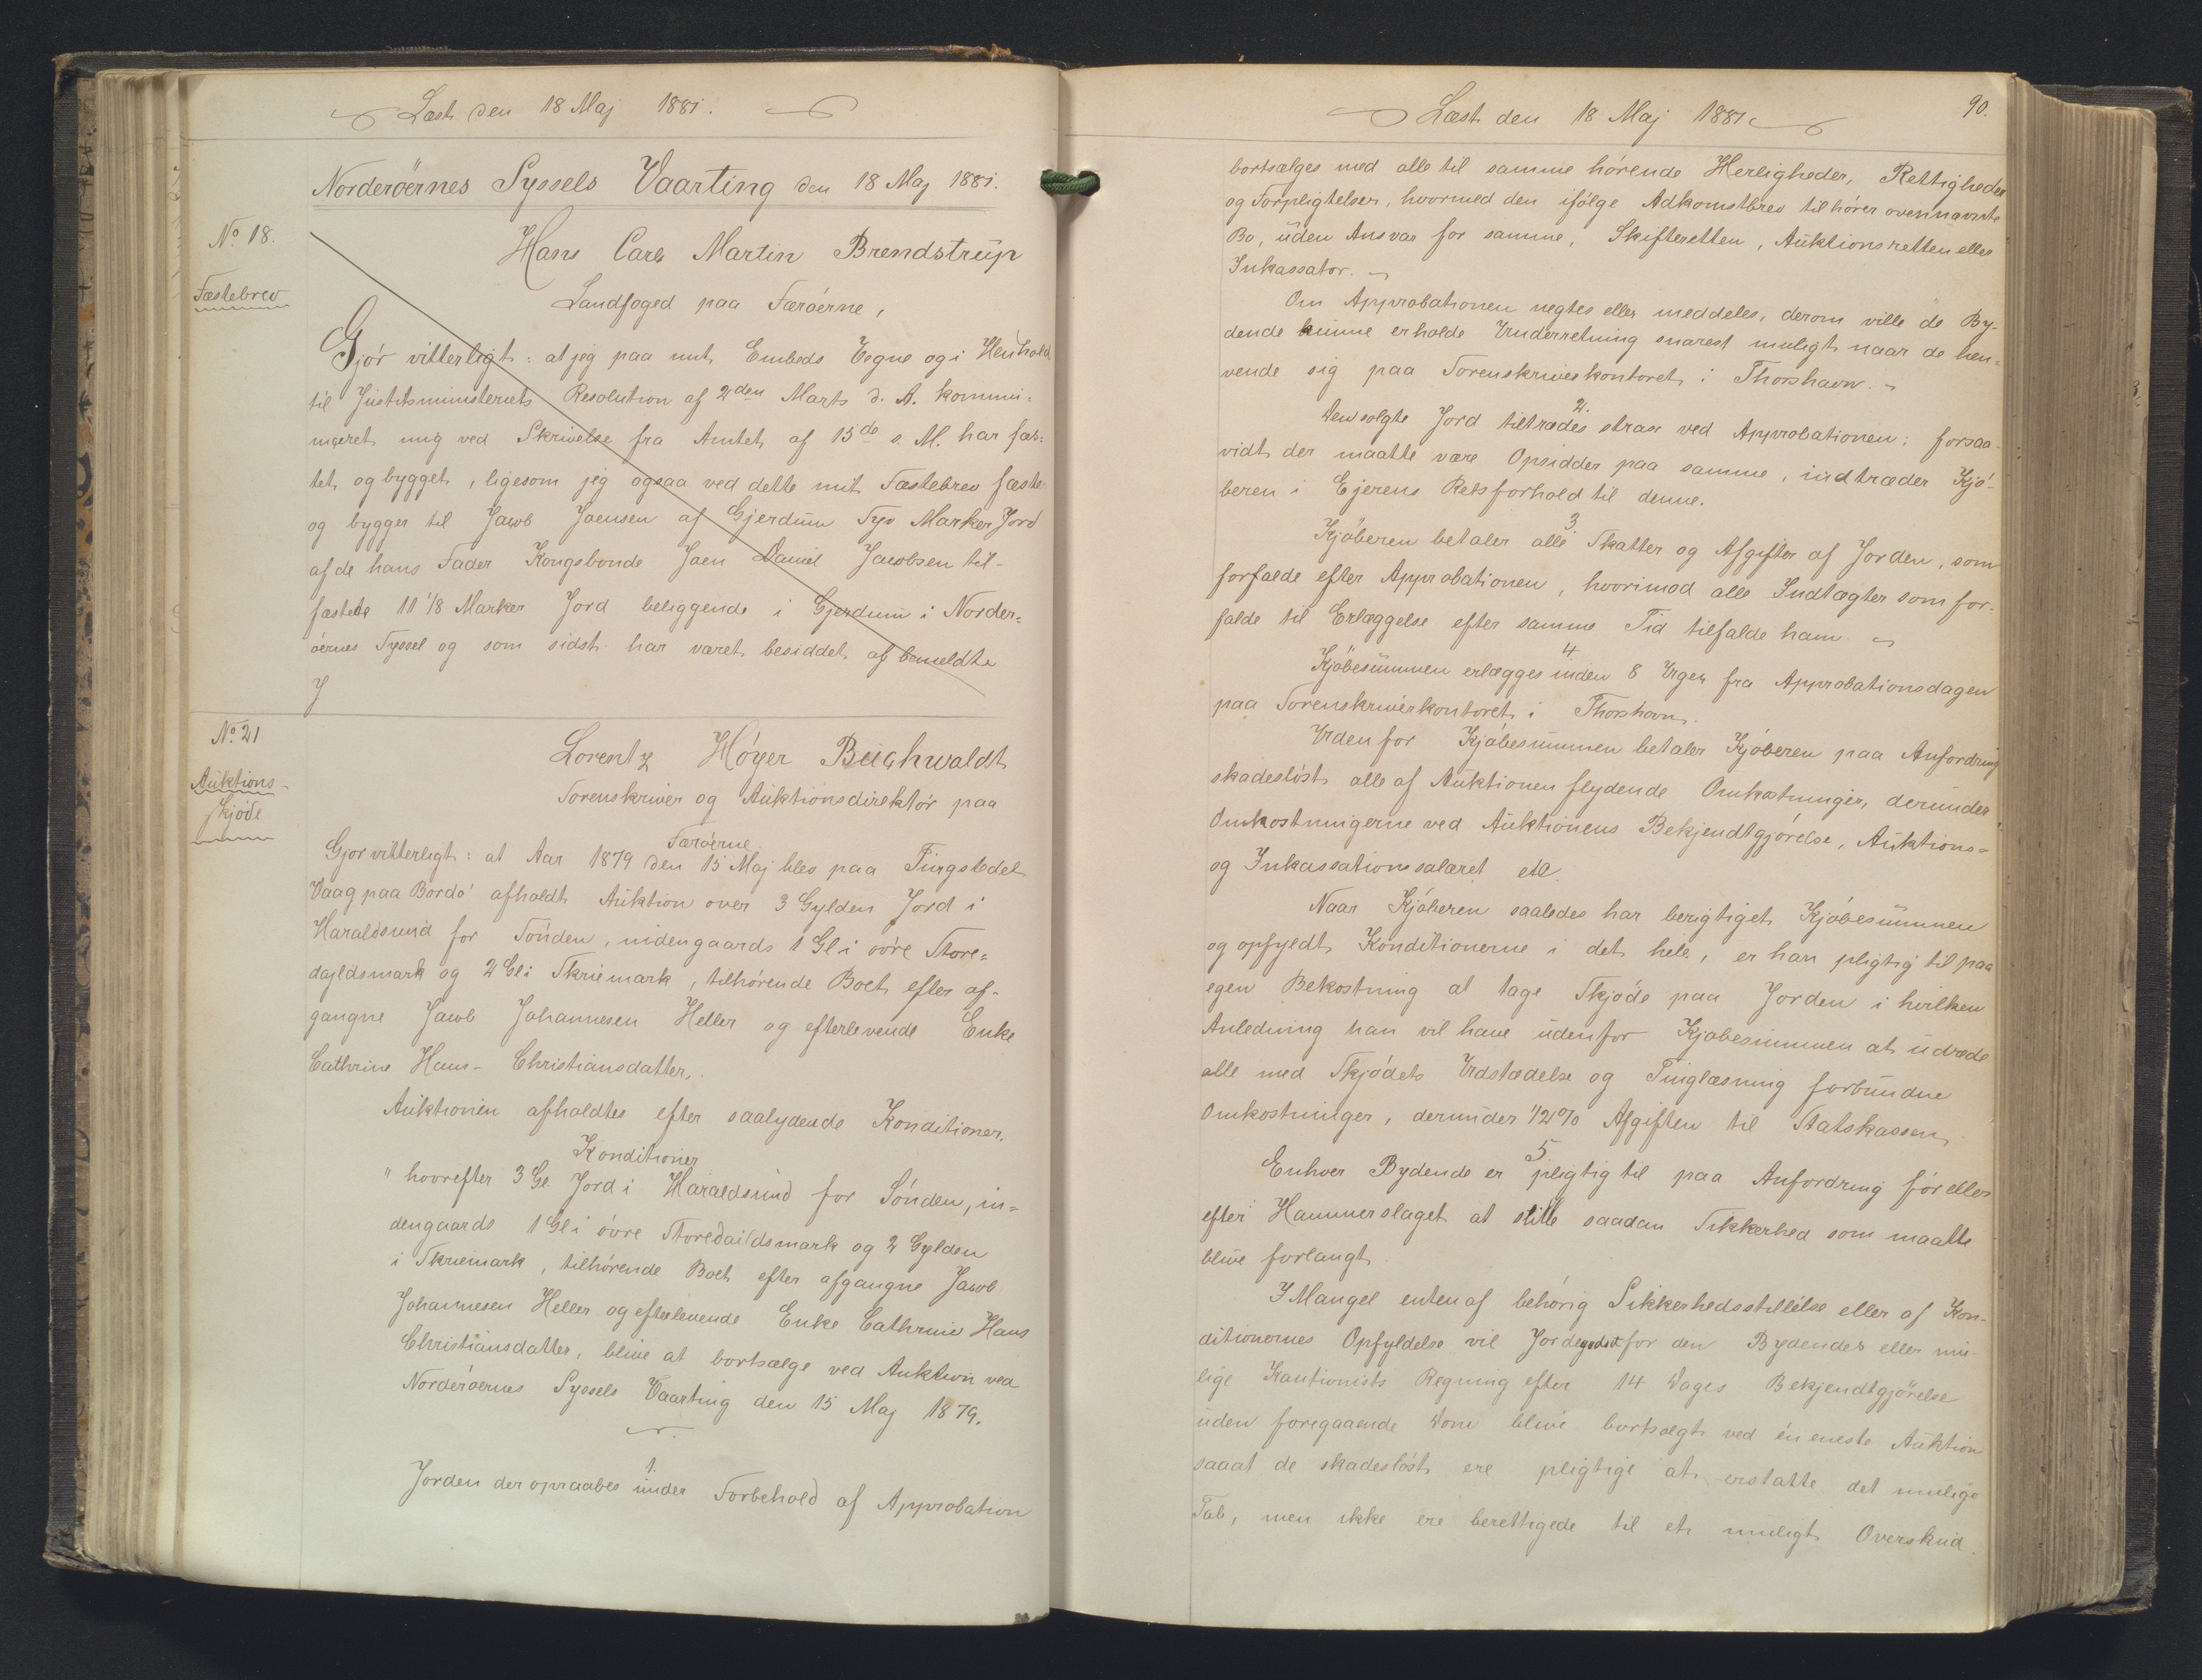 Læst den 18 Maj 1881.
Norderöernes Syssels Vaarting den 18 Maj 1881.
No. 18.
Fæstebrev
Hans Carl Martin Brendstrup
Landfoged paa Færöerne,
Gjör vitterligt: at jeg paa mit Embeds Vegne og i Henhold
til Justitsministeriets Resolution af 2den Marts d. A. kommu-
niceret mig ved Skrivelse fra Amtet af 15de s. M. har fæs-
tet og bygget, ligesom jeg ogsaa ved dette mit Fæstebrev fæste
og bygger til Jacob Joensen af Gjerdum Syv Marker Jord
af de hans Fader Kongsbonde Joen Daniel Jacobsen til-
fæstede 11 1/8 Marker Jord beliggende i Gjerdum i Norder-
öernes Syssel og som sidst har været besiddet af bemeldte
J
No. 21
Auktions-
skjöde
Lorentz Höyer Buchwaldt
Sorenskriver og Auktionsdirektör paa
Færöerne
Gjör vitterligt: at Aar 1879 den 15 Maj blev paa Tingstedet
Vaag paa Bordö afholdt Auktion over 3 Gylden Jord i
Haraldsund for Sönden, indengaards 1 Gl i övre Store-
dajldsmark og 2 Gl i Skriemark, tilhörende Boet efter af-
gangne Jacob Johannesen Heller og efterlevende Enke
Cathrine Hans-Christiansdatter.
Auktionen afholdtes efter saalydende Konditioner.
Konditioner
" hvorefter 3 Gl. Jord i Haraldsund for Sönden, in-
dengaards 1 Gl i övre Storedaildsmark og 2 Gylden
i Skriemark, tilhörende Boet efter afgangne Jacob
Johannesen Heller og efterlevende Enke Cathrine Hans
Christiansdatter, blive at bortsælge ved Auktion ved
Norderöernes Syssels Vaarting den 15 Maj 1879.
1.
Jorden der opraabes under Forbehold af Approbation
Læst den 18 Maj 1881.
90.
bortsælges med alle til samme hörende Herligheder, Rettigheder
og Forpligtelser, hvormed den ifölge Adkomstbrev tilhörer ovennævnte
Bo, uden Ansvar for samme, Skifteretten, Auktionsretten eller
Inkassator.
Om Approbationen negtes eller meddeles, derom ville de By-
dende kunne erholde Underretning snarest muligt naar de hen-
vende sig paa Sorenskriverkontoret i Thorshavn.
2.
Den solgte Jord tiltrædes strax ved Approbationen; forsaa-
vidt der maatte være Opsidder paa samme, indtræder Kjö-
beren i Ejerens Retsforhold til denne.
3.
Kjöberen betaler alle Skatter og Afgifter af Jorden, som
forfalde efter Approbationen, hvorimod alle Indtægter som for-
falde til Erlæggelse efter samme Tid tilfalde ham.
4
Kjöbesummen erlægges inden 8 Uger fra Approbationsdagen
paa Sorenskriverkontoret i Thorshavn.
Udenfor Kjöbesummen betaler Kjöberen paa Anfordring
skadeslöst alle af Auktionen flydende Omkostninger, derunder
Omkostningerne ved Auktionens Bekjendtgjörelse, Auktions-
og Inkassationssalæret etc.
Naar Kjöberen saaledes har berigtiget Kjöbesummen
og opfyldt Konditionerne i det hele, er han pligtig til paa
egen Bekostning at tage Skjöde paa Jorden i hvilken
Anledning han vil have udenfor Kjöbesummen at udrede
alle med Skjödets Udstædelse og Tinglæsning forbundne
Omkostninger, derunder 1/2 % Afgiften til Statskassen.
5
Enhver Bydende er pligtig til paa Anfordring för eller
efter Hammerslaget at stille saadan Sikkerhed som maatte
blive forlangt.
I Mangel enten af behörig Sikkerhedsstillelse eller af Kon-
ditionernes Opfyldelse vil Jordegodset for den Bydendes eller mu-
lige Kautionists Regning efter 14 Dages Bekjendtgjörelse
uden foregaaende Dom blive bortsolgt ved én eneste Auktion
saaat de skadeslöst ere pligtige at erstatte det mulige
Tab, men ikke ere berettigede til et muligt Overskud.